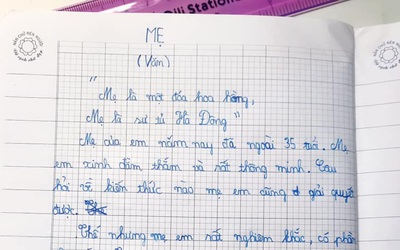 Stati
MẸ
(Văn)
"
Mẹ là một đóa hoa hồng,
Mẹ là sư tử Hà Đông"
Mẹ của em năm nay đã ngoài 35 tuổi. Mẹ
em xinh đằm thắm và rất thông minh. Câu
hỏi về kiến thức nào mẹ em cũng giải quyết
được.
Thế nhưng mẹ em rất nghiêm khắc, có phần